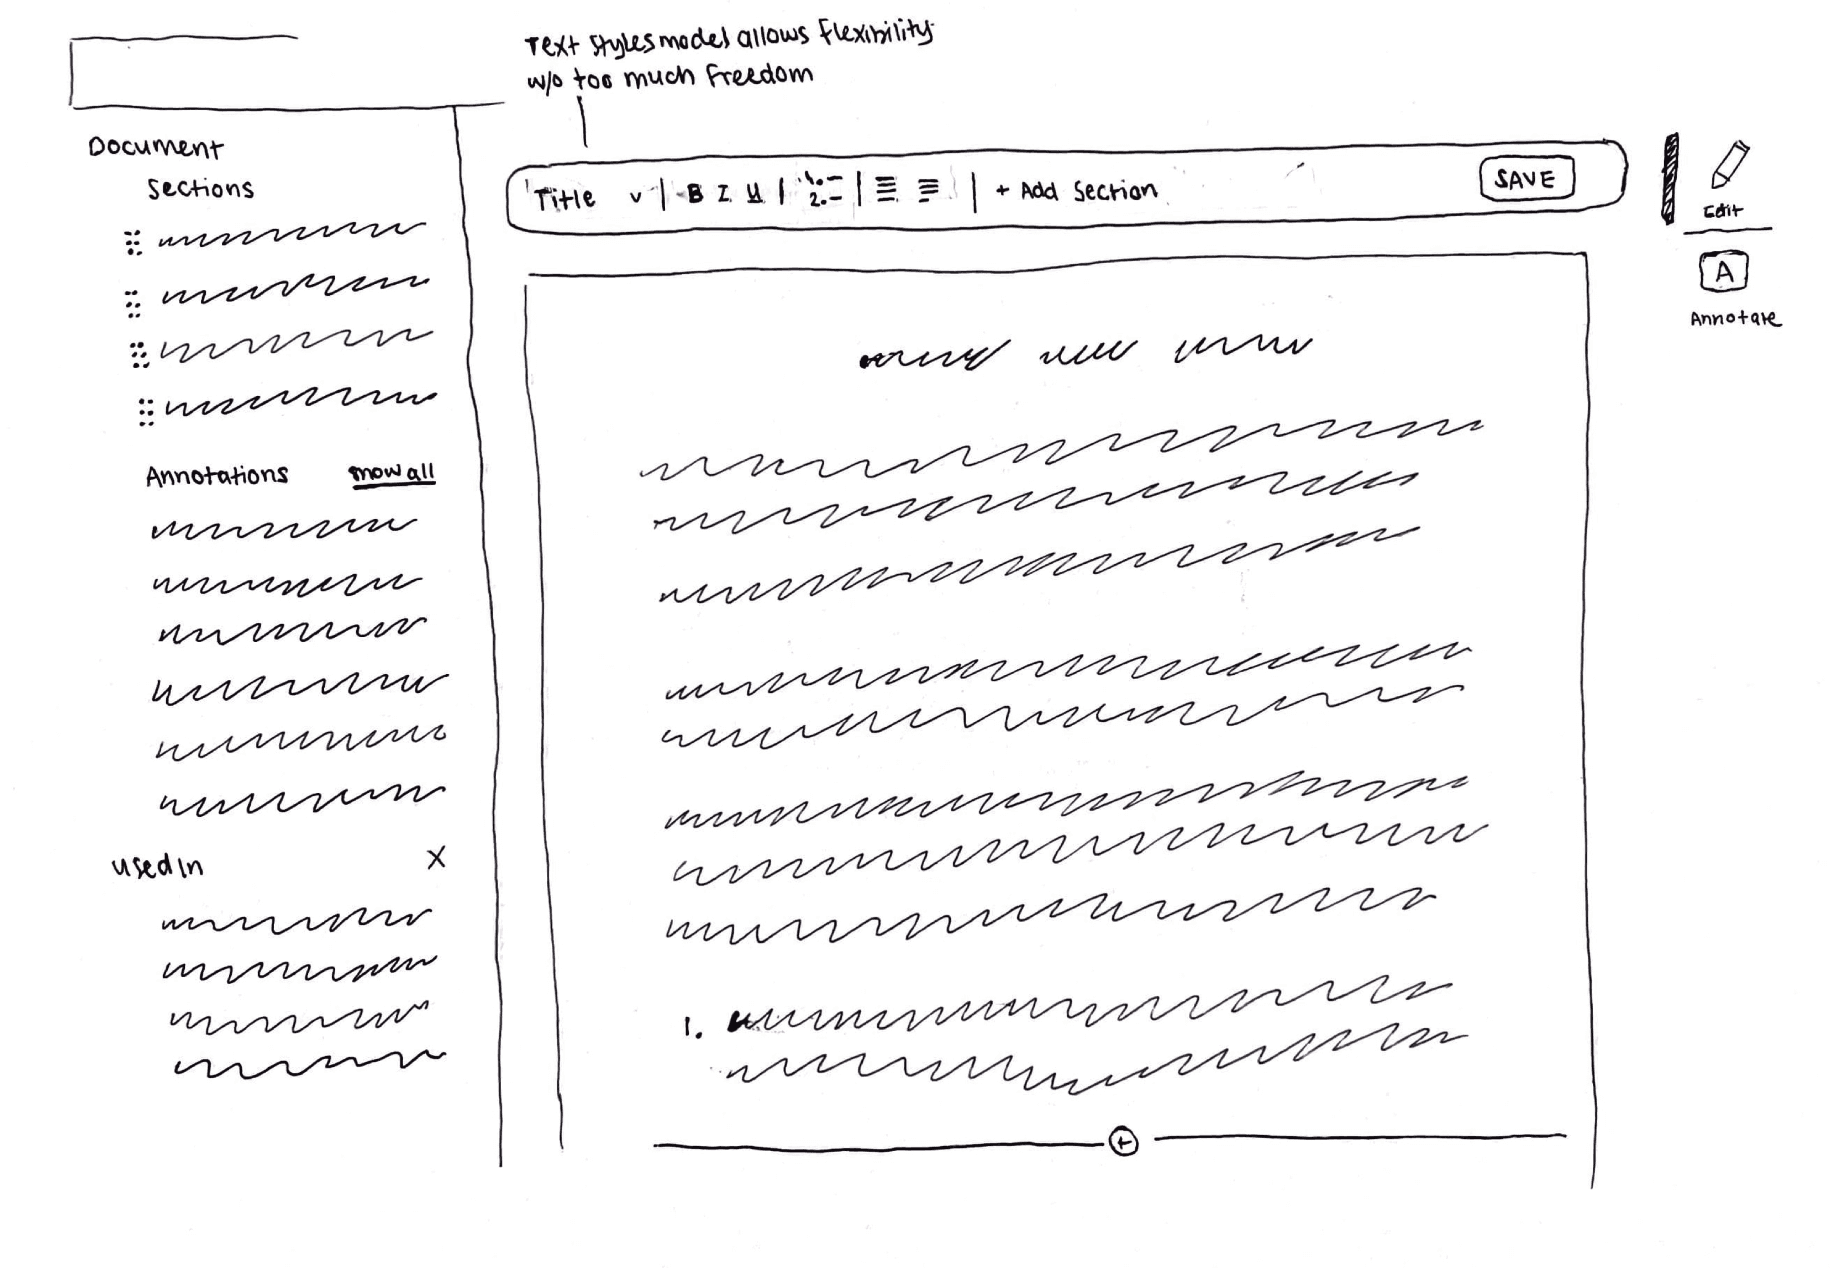 Text styles model allows flexibility
w/o too much freedom
Document
Sections
Title v | B I U | 1.- 2.- | | + Add Section SAVE
Edit
A
Annotate
Annotations show all
Used In X
1.
+